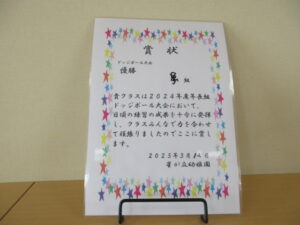 賞状
ドッジボール大会
優勝
組
貴クラスは2024年度年長組
ドッジボール大会において、
日頃の練習の成果を十分に発揮
し、クラスみんなで力を合わせ
て頑張りましたのでここに賞し
ます。
2025年3月14日
星が丘幼稚園